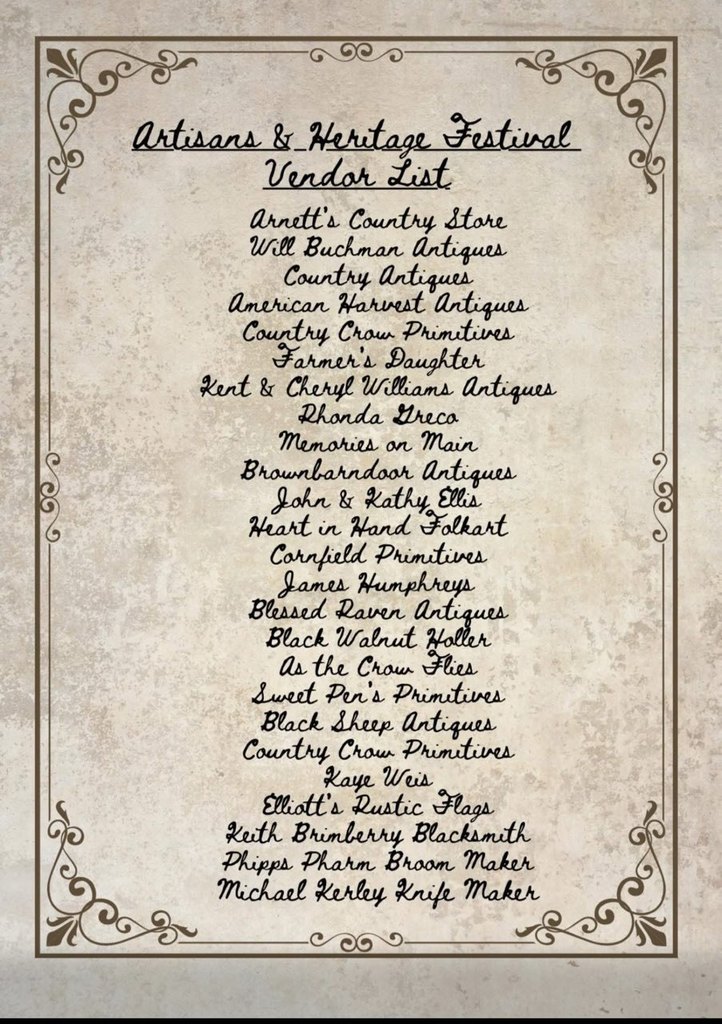 Artisans & Heritage Festival
Vendor List
Arnett's Country Store
Will Buchman Antiques
Country Antiques
American Harvest Antiques
Country Crow Primitives
Farmer's Daughter
Kent & Cheryl Williams Antiques
Rhonda Greco
Memories on Main
Brownbarndoor Antiques
John & Kathy Ellis
Heart in Hand Folkart
Cornfield Primitives
James Humphreys
Blessed Raven Antiques
Black Walnut Holler
As the Crow Flies
Sweet Pen's Primitives
Black Sheep Antiques
Country Crow Primitives
Kaye Weis
Elliott's Rustic Flags
Keith Brimberry Blacksmith
Phipps Pharm Broom Maker
Michael Kerley Knife Maker